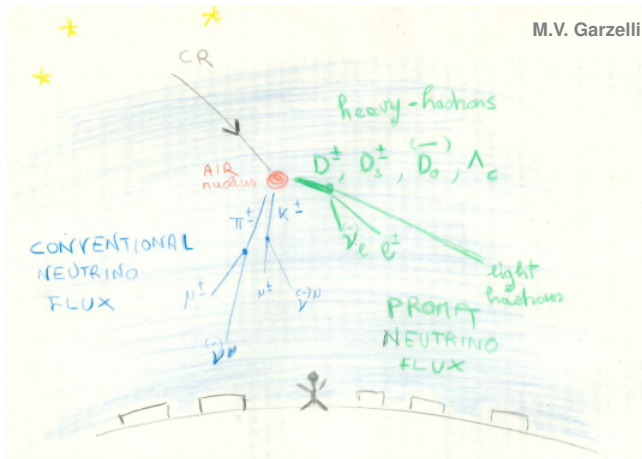 M.V. Garzelli
CR
heavy-hadrons
D±, Ds±, (—)D0, Λc
AIR
nucleus
π± K±
CONVENTIONAL
NEUTRINO
FLUX
(-)νe e±
light
hadrons
μ± μ± (-)νμ
(-)νμ
PROMPT
NEUTRINO
FLUX